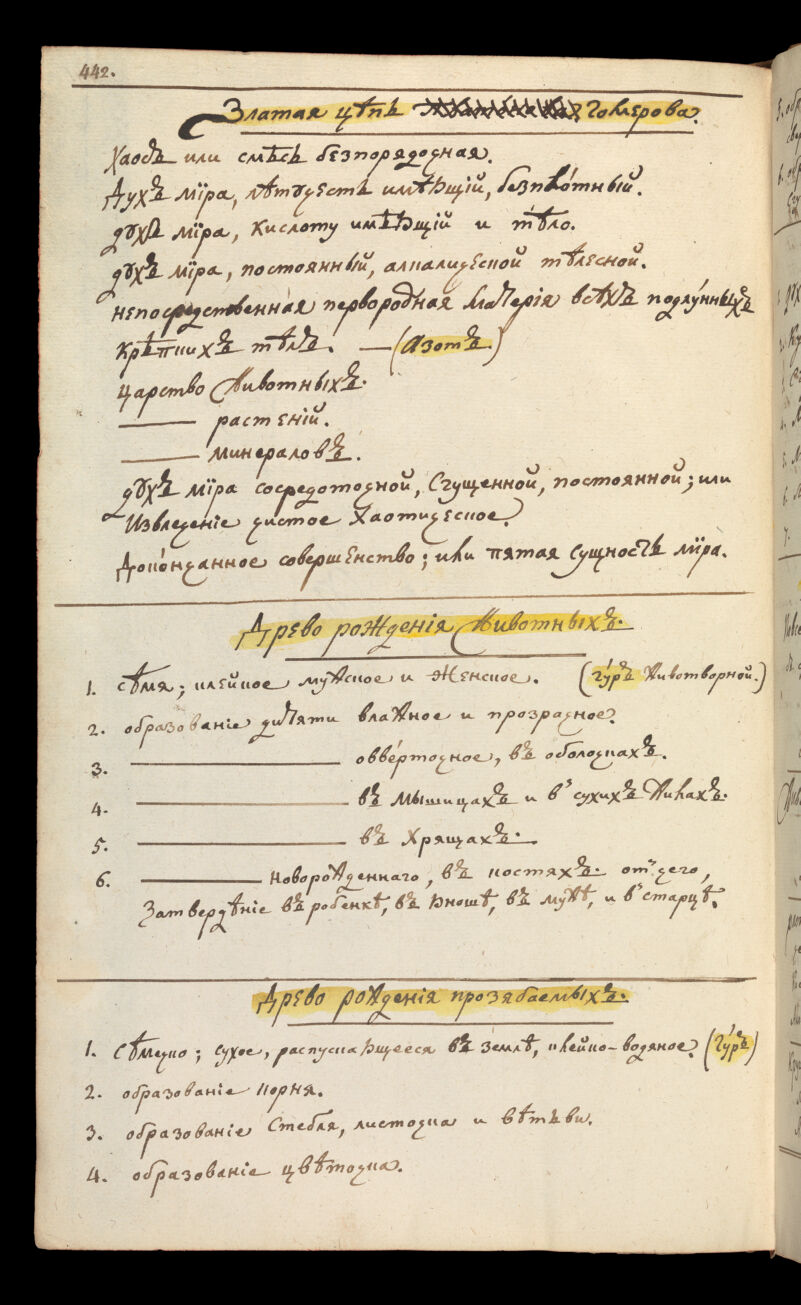 442.
Златая цѣпь Гомерова.
Хаосъ или смѣсь безпорядочная.
Духъ мїра, лѣтучесть имѣющій, безплóтный.
духъ мїра, кислоту имѣющій и тѣло.
духъ мїра, постоянный, алкалической тѣлесной.
непосредственная первородная матерія всѣхъ подлу́нныхъ
крѣпкихъ тѣлъ. — (Азотъ)
царство Животныхъ.
——— растеній.
——— минераловъ.
духъ мїра сосредоточной, Сгущенной, постоянной; или
Извлеченіе чистое Хаотическое.
Доко́нчанное совершенство; или пятая сущность мїра.
Древо рожденія Животныхъ.
1. сѣмя; клейкое мужское и Женское. (гу́ръ Животворной.)
2. образованіе дитяти влажное и прозрачное.
3. ——— оввéрточное, въ оболочкахъ.
4. ——— въ мышицахъ и въ сухихъ жилахъ.
5. ——— въ Хрящахъ.
6. ——— новорожденнаго, въ костяхъ. отъ чего,
Затвердѣніе въ робенкѣ, въ юношѣ, въ мужѣ, и въ старцѣ.
Древо рожденія прозябаемыхъ.
1. сѣмечко; сухое, распускающееся въ землѣ, клейко-водяное. (Гу́ръ)
2. образованіе корня.
3. образованіе Стебля, листочка и вѣтьви.
4. образованіе цвѣточка.